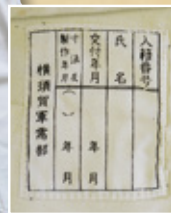 入籍番号
氏名
交付年月 年 月
寸法及
製作年月 ( ) 年 月
横須賀軍需部